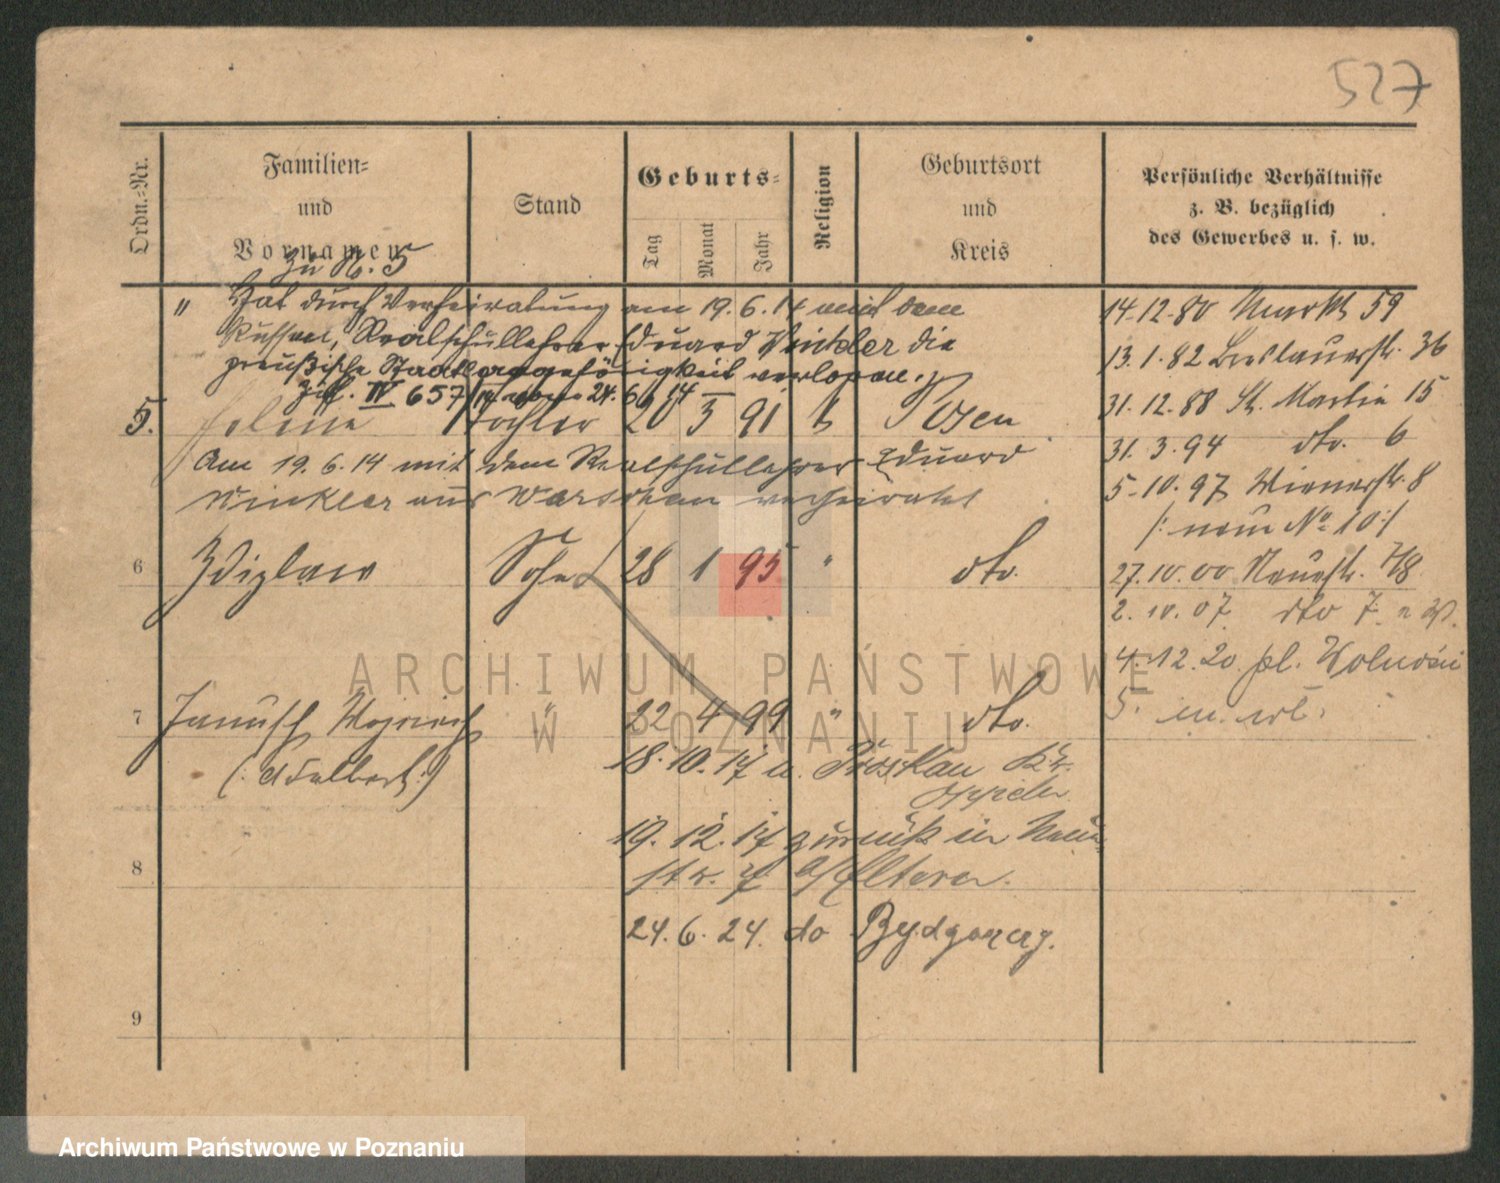 527
Ordn.-Nr.
Familien- und Vornamen
Stand
Geburts-
Tag
Monat
Jahr
Religion
Geburtsort und Kreis
Persönliche Verhältnisse
z. B. bezüglich
des Gewerbes u. s. w.
zu N. 5
" Hat durch Verheiratung am 19.6.14 mit dem
Russen, Realschullehrer Eduard Winkler die
preußische Staatsangehörigkeit verloren.
IV 657/14 24.6.14
5. Helene Tochter 20 3 91 k Posen
Am 19.6.14 mit dem Realschullehrer Eduard
Winkler aus Warschau verheiratet
6 Zdizlaw Sohn 28 1 95 " dto.
7 Janusch Wojciech " 22 4 99 " dto.
(: Adalbert :)
18.10.17 n. Proskau Kr.
Oppeln
19.12.17 zurück in Neue-
str. 7 a/ Eltern.
8
24.6.24. do Bydgoszcz.
9
14.12.80 Markt 59
13.1.82 Breslauerstr. 36
31.12.88 St. Martin 15
31.3.94 dto. 6
5.10.97 Wienerstr. 8
/: neue No 10 :/
27.10.00 Neuestr. 7/8
2.10.07 dto 7.
4.12.20. pl. Wolności
5.
ARCHIWUM PAŃSTWOWE
W POZNANIU
Archiwum Państwowe w Poznaniu